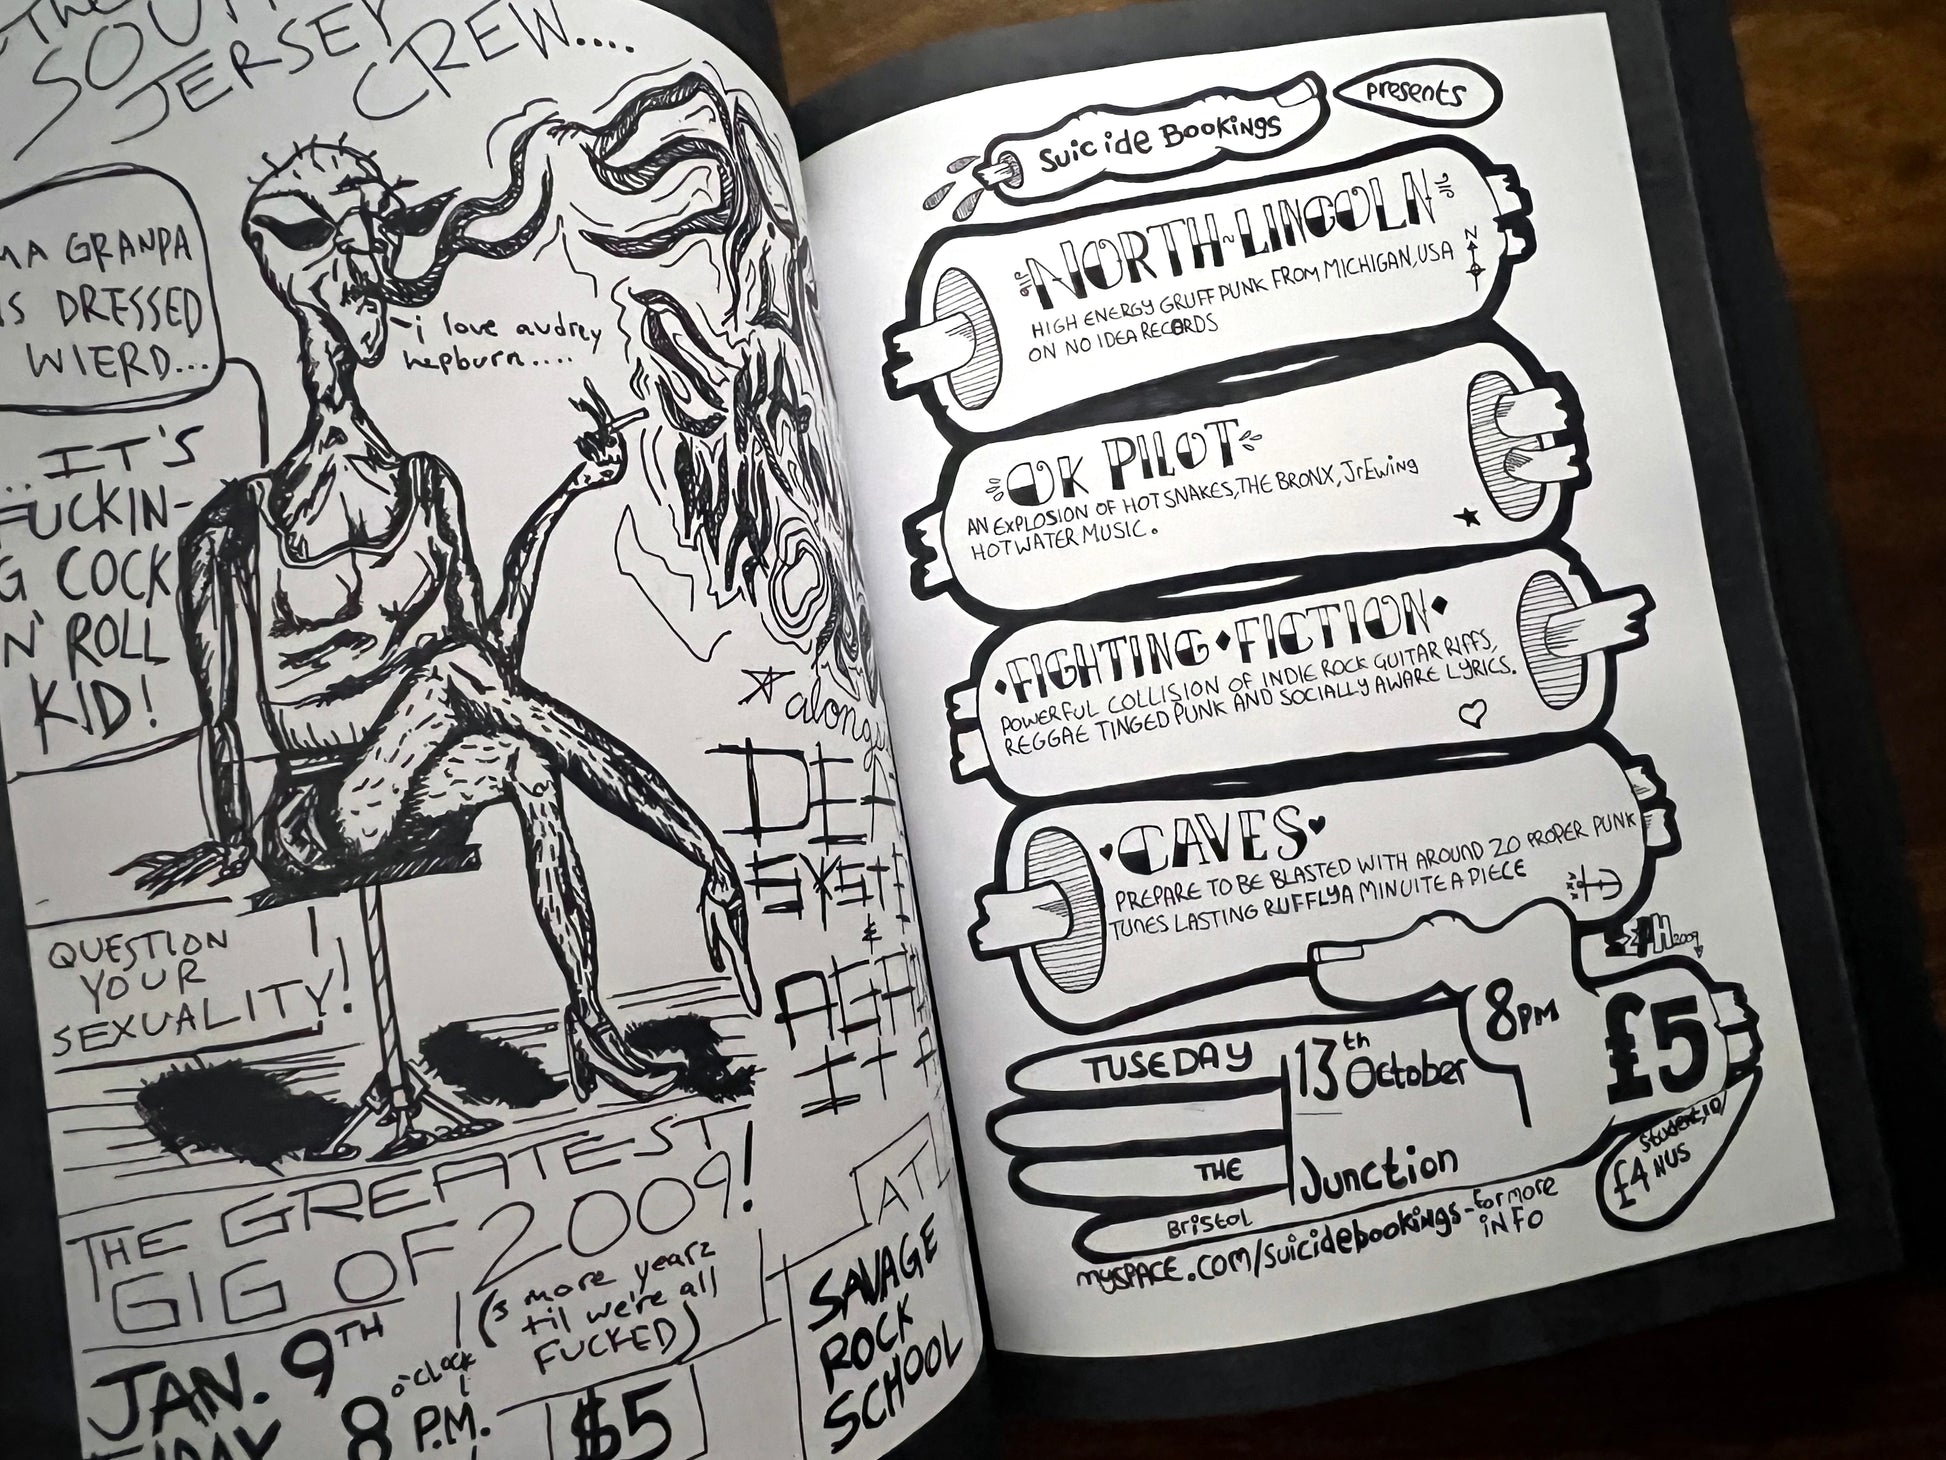 SOUTH
JERSEY
CREW....
MA GRANPA
IS DRESSED
WIERD...
-i love audrey
hepburn....
...IT'S
FUCKIN-
G COCK
N' ROLL
KID!
along
QUESTION
YOUR
SEXUALITY!
THE GREATEST
GIG OF 2009!
(3 more yearz
til we're all
FUCKED)
JAN. 9TH
8 o'clock
P.M.
$5
SAVAGE
ROCK
SCHOOL
Suicide Bookings
presents
NORTH-LINCOLN
HIGH ENERGY GRUFF PUNK FROM MICHIGAN, USA
ON NO IDEA RECORDS
N
OK PILOT
AN EXPLOSION OF HOT SNAKES, THE BRONX, JrEwing
HOT WATER MUSIC.
FIGHTING FICTION
POWERFUL COLLISION OF INDIE ROCK GUITAR RIFFS,
REGGAE TINGED PUNK AND SOCIALLY AWARE LYRICS.
CAVES
PREPARE TO BE BLASTED WITH AROUND 20 PROPER PUNK
TUNES LASTING RUFFLYA MINUITE A PIECE
2009
TUSEDAY 13th October
8PM
£5
THE Junction
Student, ID/
£4 NUS
Bristol
myspace.com/suicidebookings - for more
info